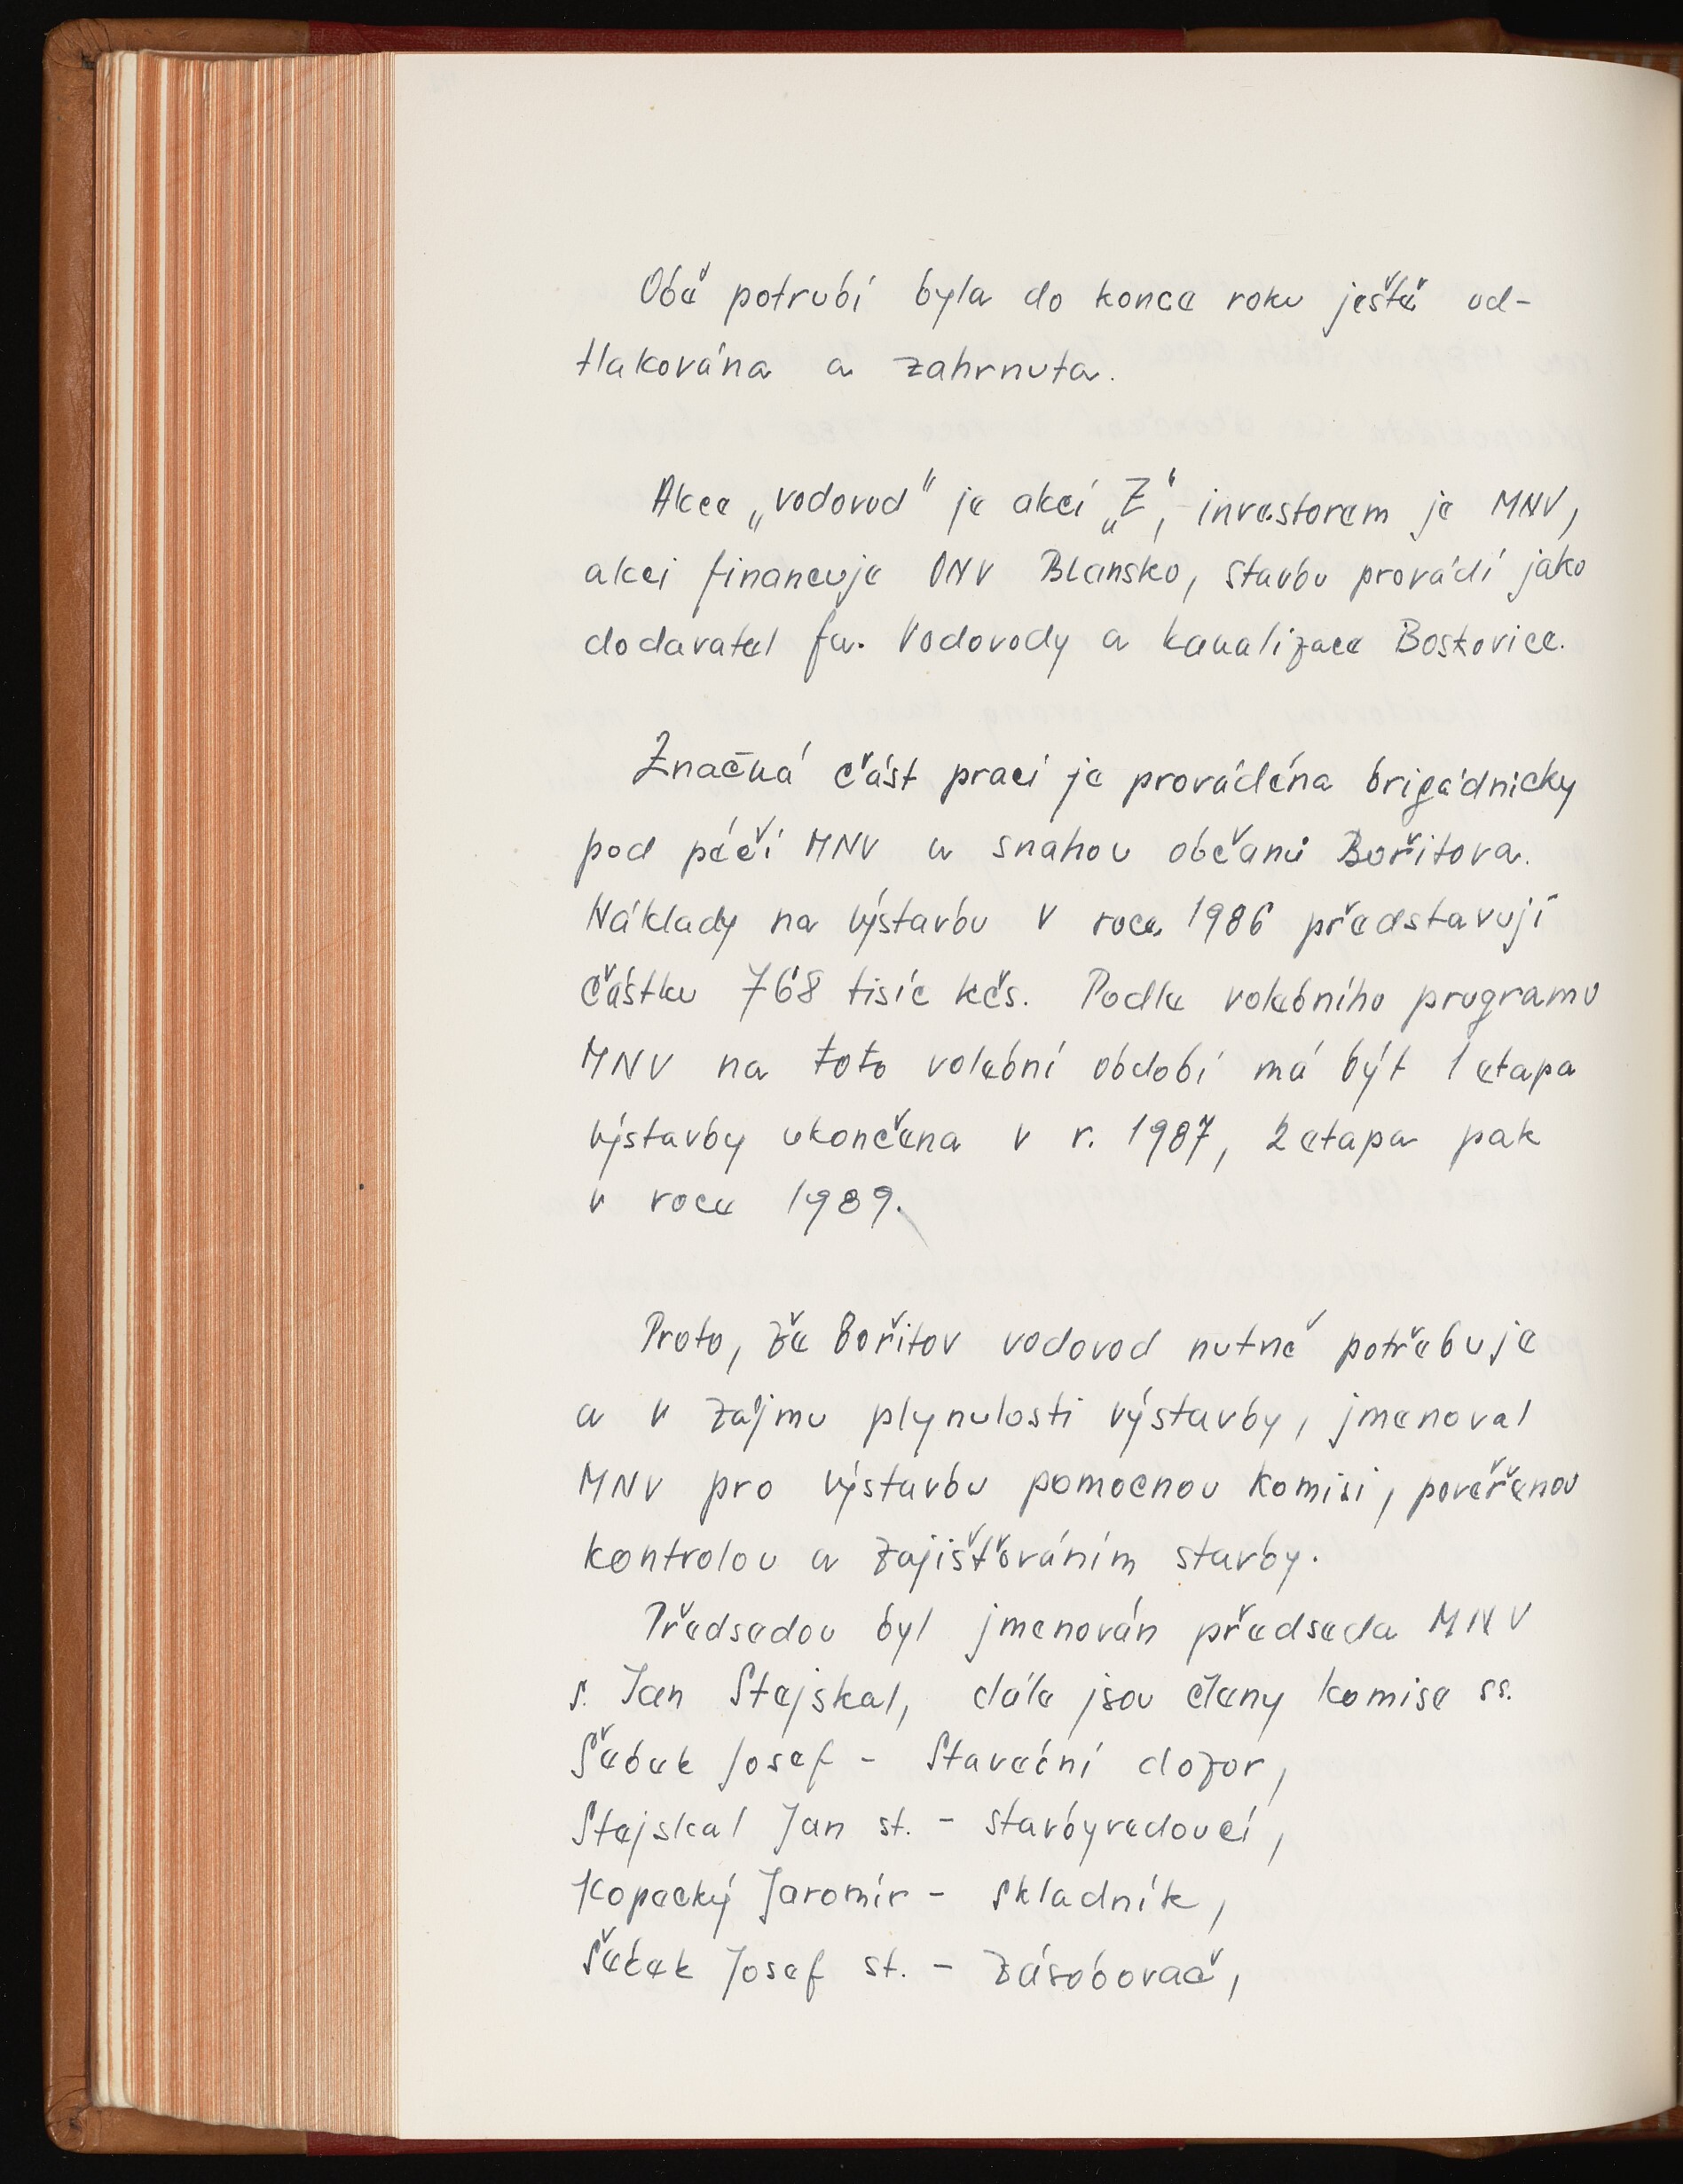 Obě potrubí byla do konce roku ještě od-
tlakována a zahrnuta.
Akce „vodovod" je akcí „Z", investorem je MNV,
akci financuje ONV Blansko, stavbu provádí jako
dodavatel fa. Vodovody a kanalizace Boskovice.
Značná část prací je prováděna brigádnicky
pod péčí MNV a snahou občanů Bořitova.
Náklady na výstavbu v roce 1986 představují
částku 768 tisíc kčs. Podle volebního programu
MNV na toto volební období má být 1 etapa
výstavby ukončena v r. 1987, 2 etapa pak
v roce 1989.
Proto, že Bořitov vodovod nutně potřebuje
a v zájmu plynulosti výstavby, jmenoval
MNV pro výstavbu pomocnou komisi, pověřenou
kontrolou a zajišťováním stavby.
Předsedou byl jmenován předseda MNV
s. Jan Stejskal, dále jsou členy komise ss.
Šebek Josef - Stavební dozor,
Stejskal Jan st. - stavbyvedoucí,
Kopecký Jaromír - skladník,
Šebek Josef st. - zásobovač,